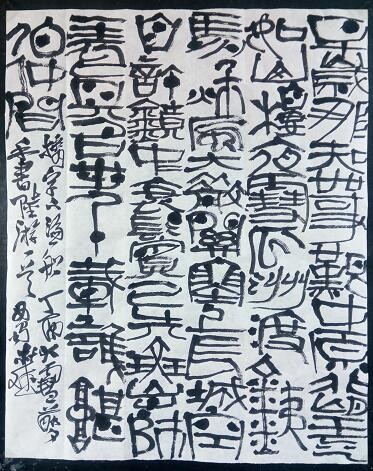 早歲那知世事艱中原北望氣
如山樓夜雪瓜洲渡鐵
馬秋風大散關塞上長城空
自許鏡中衰鬢已先斑出師
一表真名世千載誰堪
伯仲間
樓字下漏船丁酉大雪
書陸游